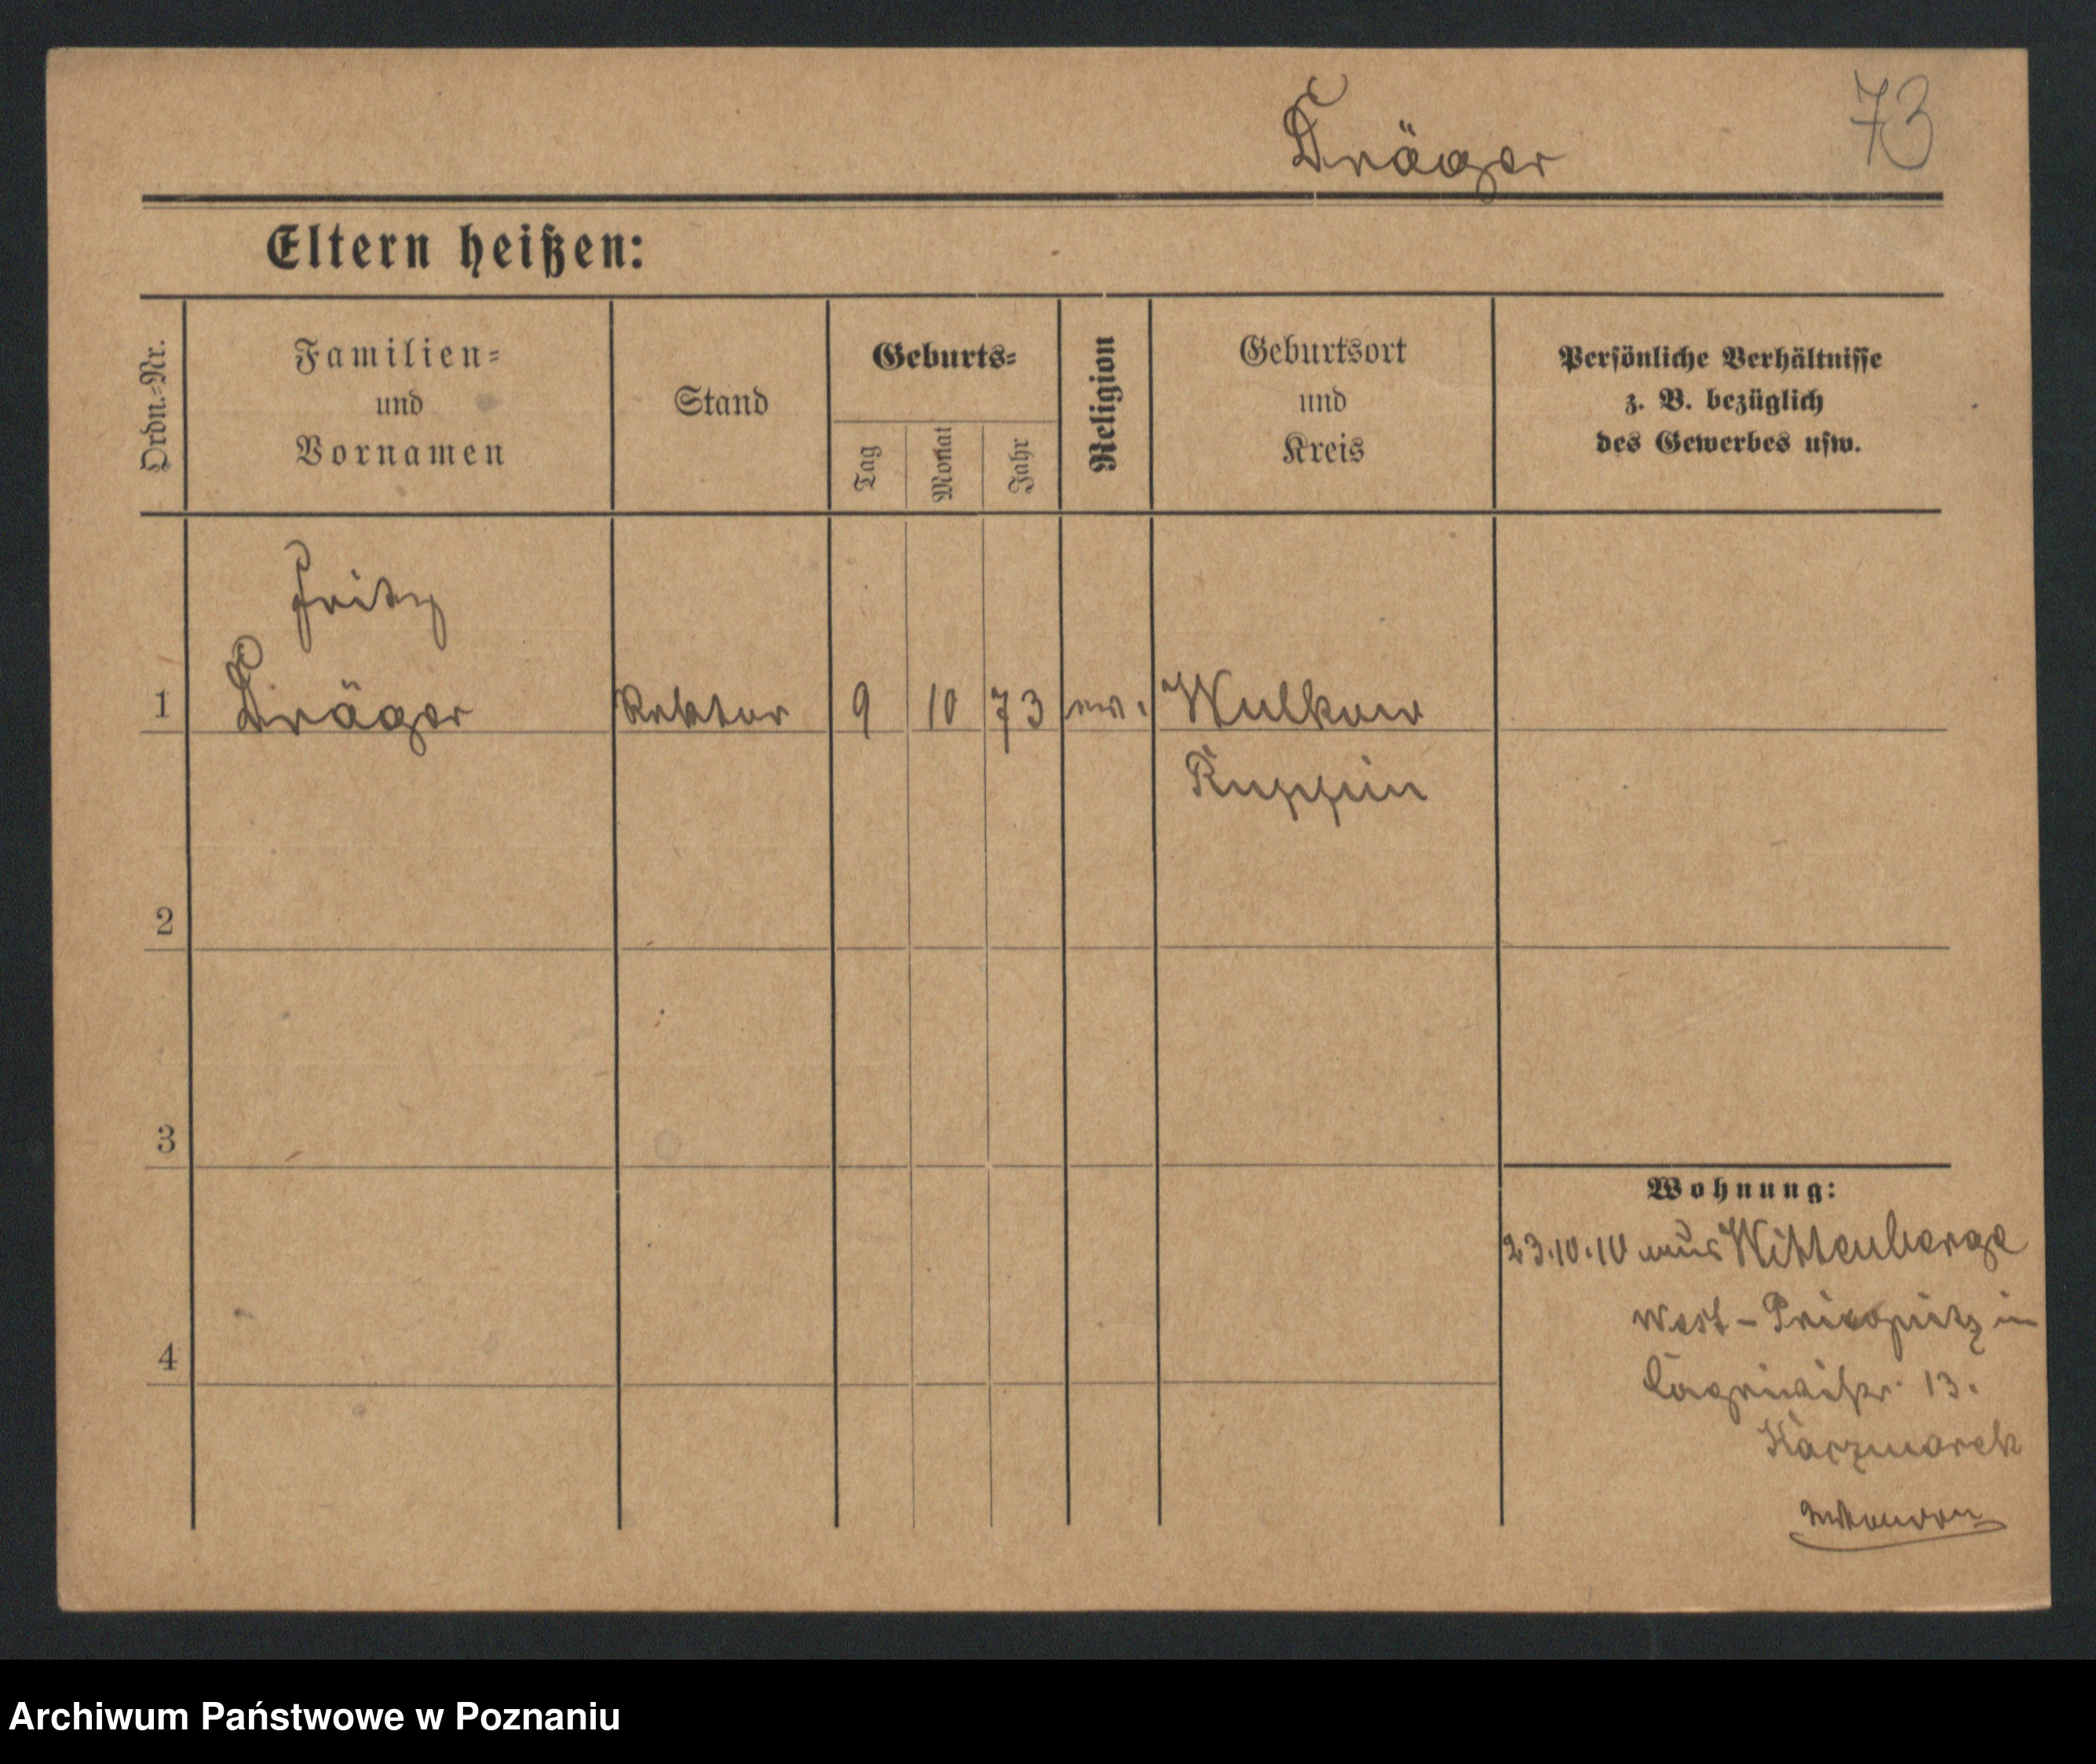 Dräger
73
Eltern heißen:
Ordn.-Nr.
Familien-
und
Vornamen
Stand
Geburts-
Tag
Monat
Jahr
Religion
Geburtsort
und
Kreis
Persönliche Verhältnisse
z. B. bezüglich
des Gewerbes usw.
Fritz
1 Dräger Rektor 9 10 73 ev. Wulkow
Ruppin
2
3
Wohnung:
23.10.10 aus Wittenberge
West-Priegnitz in
13.
4
Kaczmarek
Archiwum Państwowe w Poznaniu